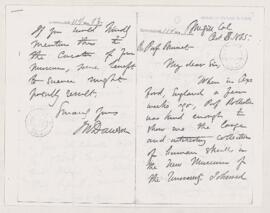 McGill Col
Oct 8, 1885.
Prof. Brunet
My dear Sir,
When in Ox-
ford, England a few
weeks ago, Prof Rolleston
was kind enough to
show me the large
and collection
of human skulls in
the New Museum of
the University. I showed
If you would kindly
mention this to
the Curator of your
Museum, some benefit
to science might
possibly result.
Sincerely yours
JWDawson